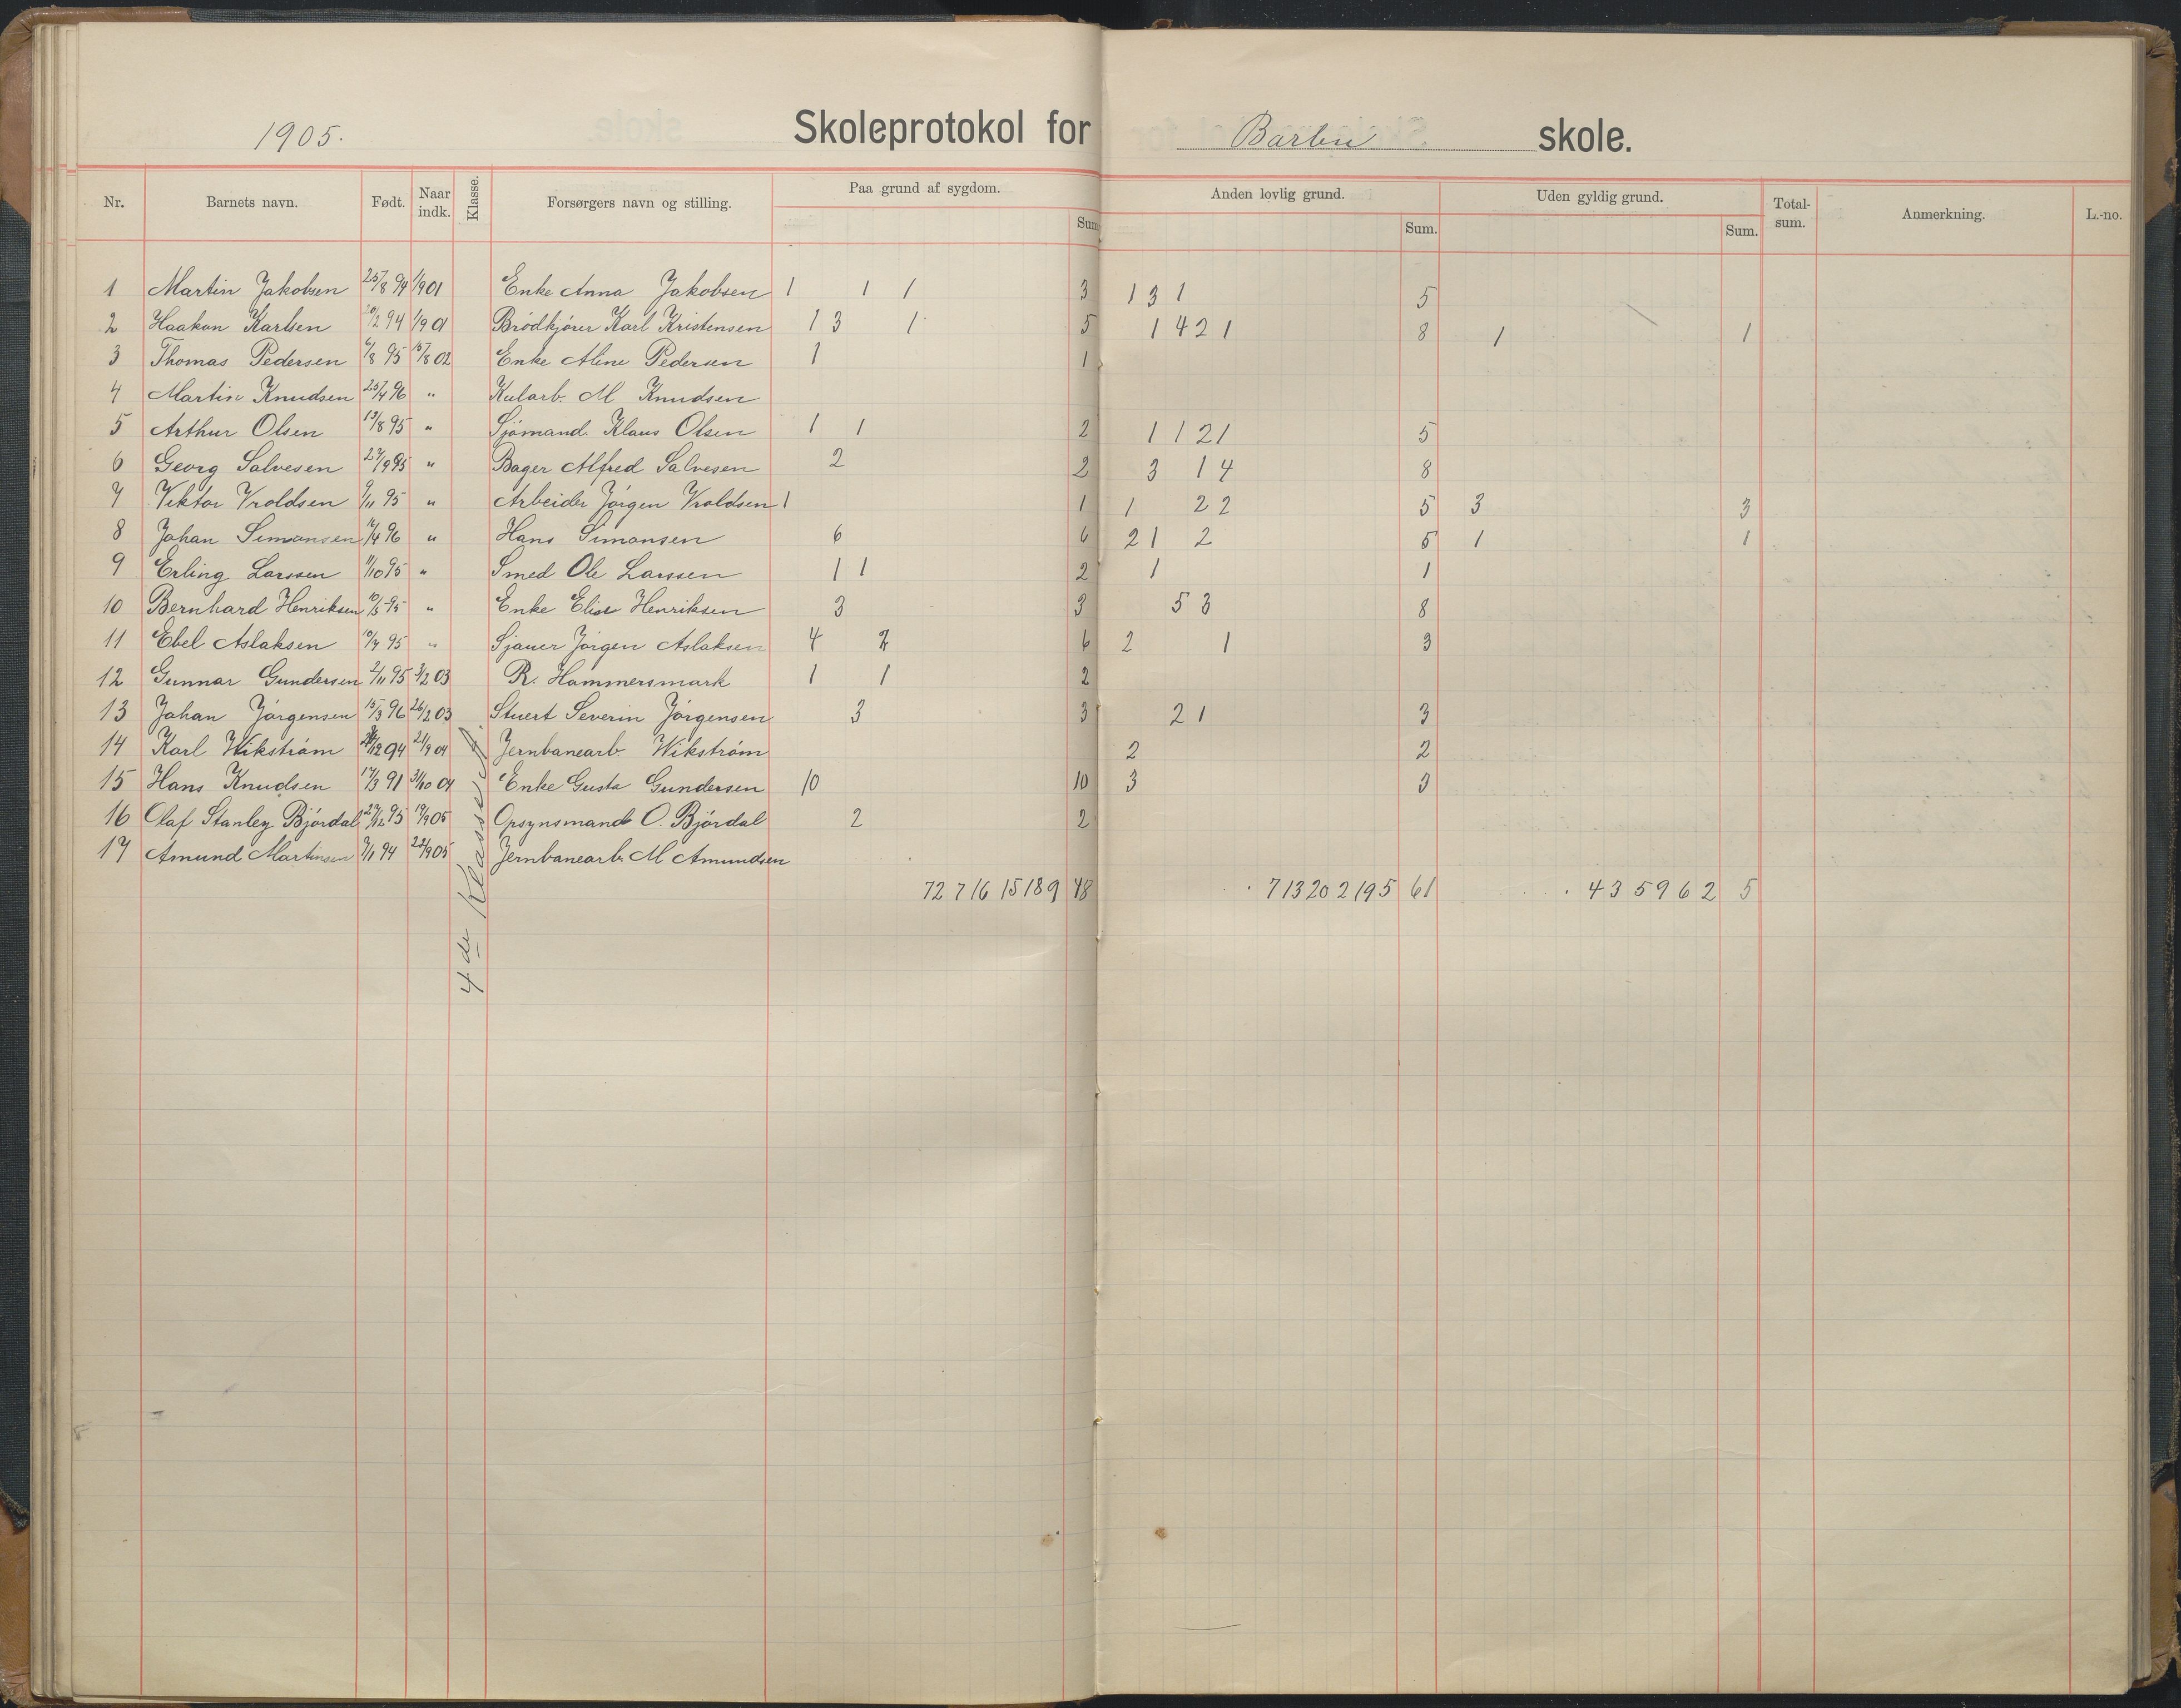 1905. Skoleprotokol for Barbu skole.
Nr. Barnets navn. Født. Naar indk. Klasse. Forsørgers navn og stilling. Paa grund af sygdom. Sum. Anden lovlig grund. Sum. Uden gyldig grund. Sum. Total-sum. Anmerkning. L.-no.
1 Martin Jakobsen 25/8 94 1/9 01 Enke Anna Jakobsen 1 1 1 3 1 3 1 5
2 Haakon Karlsen 20/2 94 1/9 01 Brödkjörer Karl Kristensen 1 3 1 5 1 4 2 1 8 1 1
3 Thomas Pedersen 6/8 95 15/8 02 Enke Aline Pedersen 1 1
4 Martin Knudsen 25/4 96 " Kularb. M Knudsen
5 Arthur Olsen 13/8 95 " Sjömand. Klaus Olsen 1 1 2 1 1 2 1 5
6 Georg Salvesen 27/9 95 " Bager Alfred Salvesen 2 2 3 1 4 8
7 Viktor Vroldsen 9/11 95 " Arbeider Jörgen Vroldsen 1 1 1 2 2 5 3 3
8 Johan Simonsen 16/4 96 " Hans Simonsen 6 6 2 1 2 5 1 1
9 Erling Larssen 11/10 95 " Smed Ole Larssen 1 1 2 1 1
10 Bernhard Henriksen 10/5 95 " Enke Elise Henriksen 3 3 5 3 8
11 Ebel Aslaksen 10/7 95 " Sjauer Jörgen Aslaksen 4 2 6 2 1 3
12 Gunnar Gundersen 2/11 95 3/2 03 R. Hammersmark 1 1 2
13 Johan Jörgensen 15/3 96 26/2 03 Stuert Severin Jörgensen 3 3 2 1 3
14 Karl Wikström 12 94 21/9 04 Jernbanearb. Wikström 2 2
15 Hans Knudsen 17/3 91 31/10 04 Enke Gusta Gundersen 10 10 3 3
16 Olaf Stanley Björdal 27/12 95 19/9 05 Opsynsmand O. Björdal 2 2
17 Amund Martinsen 9/1 94 22/9 05 Jernbanearb. M Amundsen
72 7 16 15 18 9 48 7 13 20 2 19 5 61 4 3 5 9 6 2 5
4de Klasse